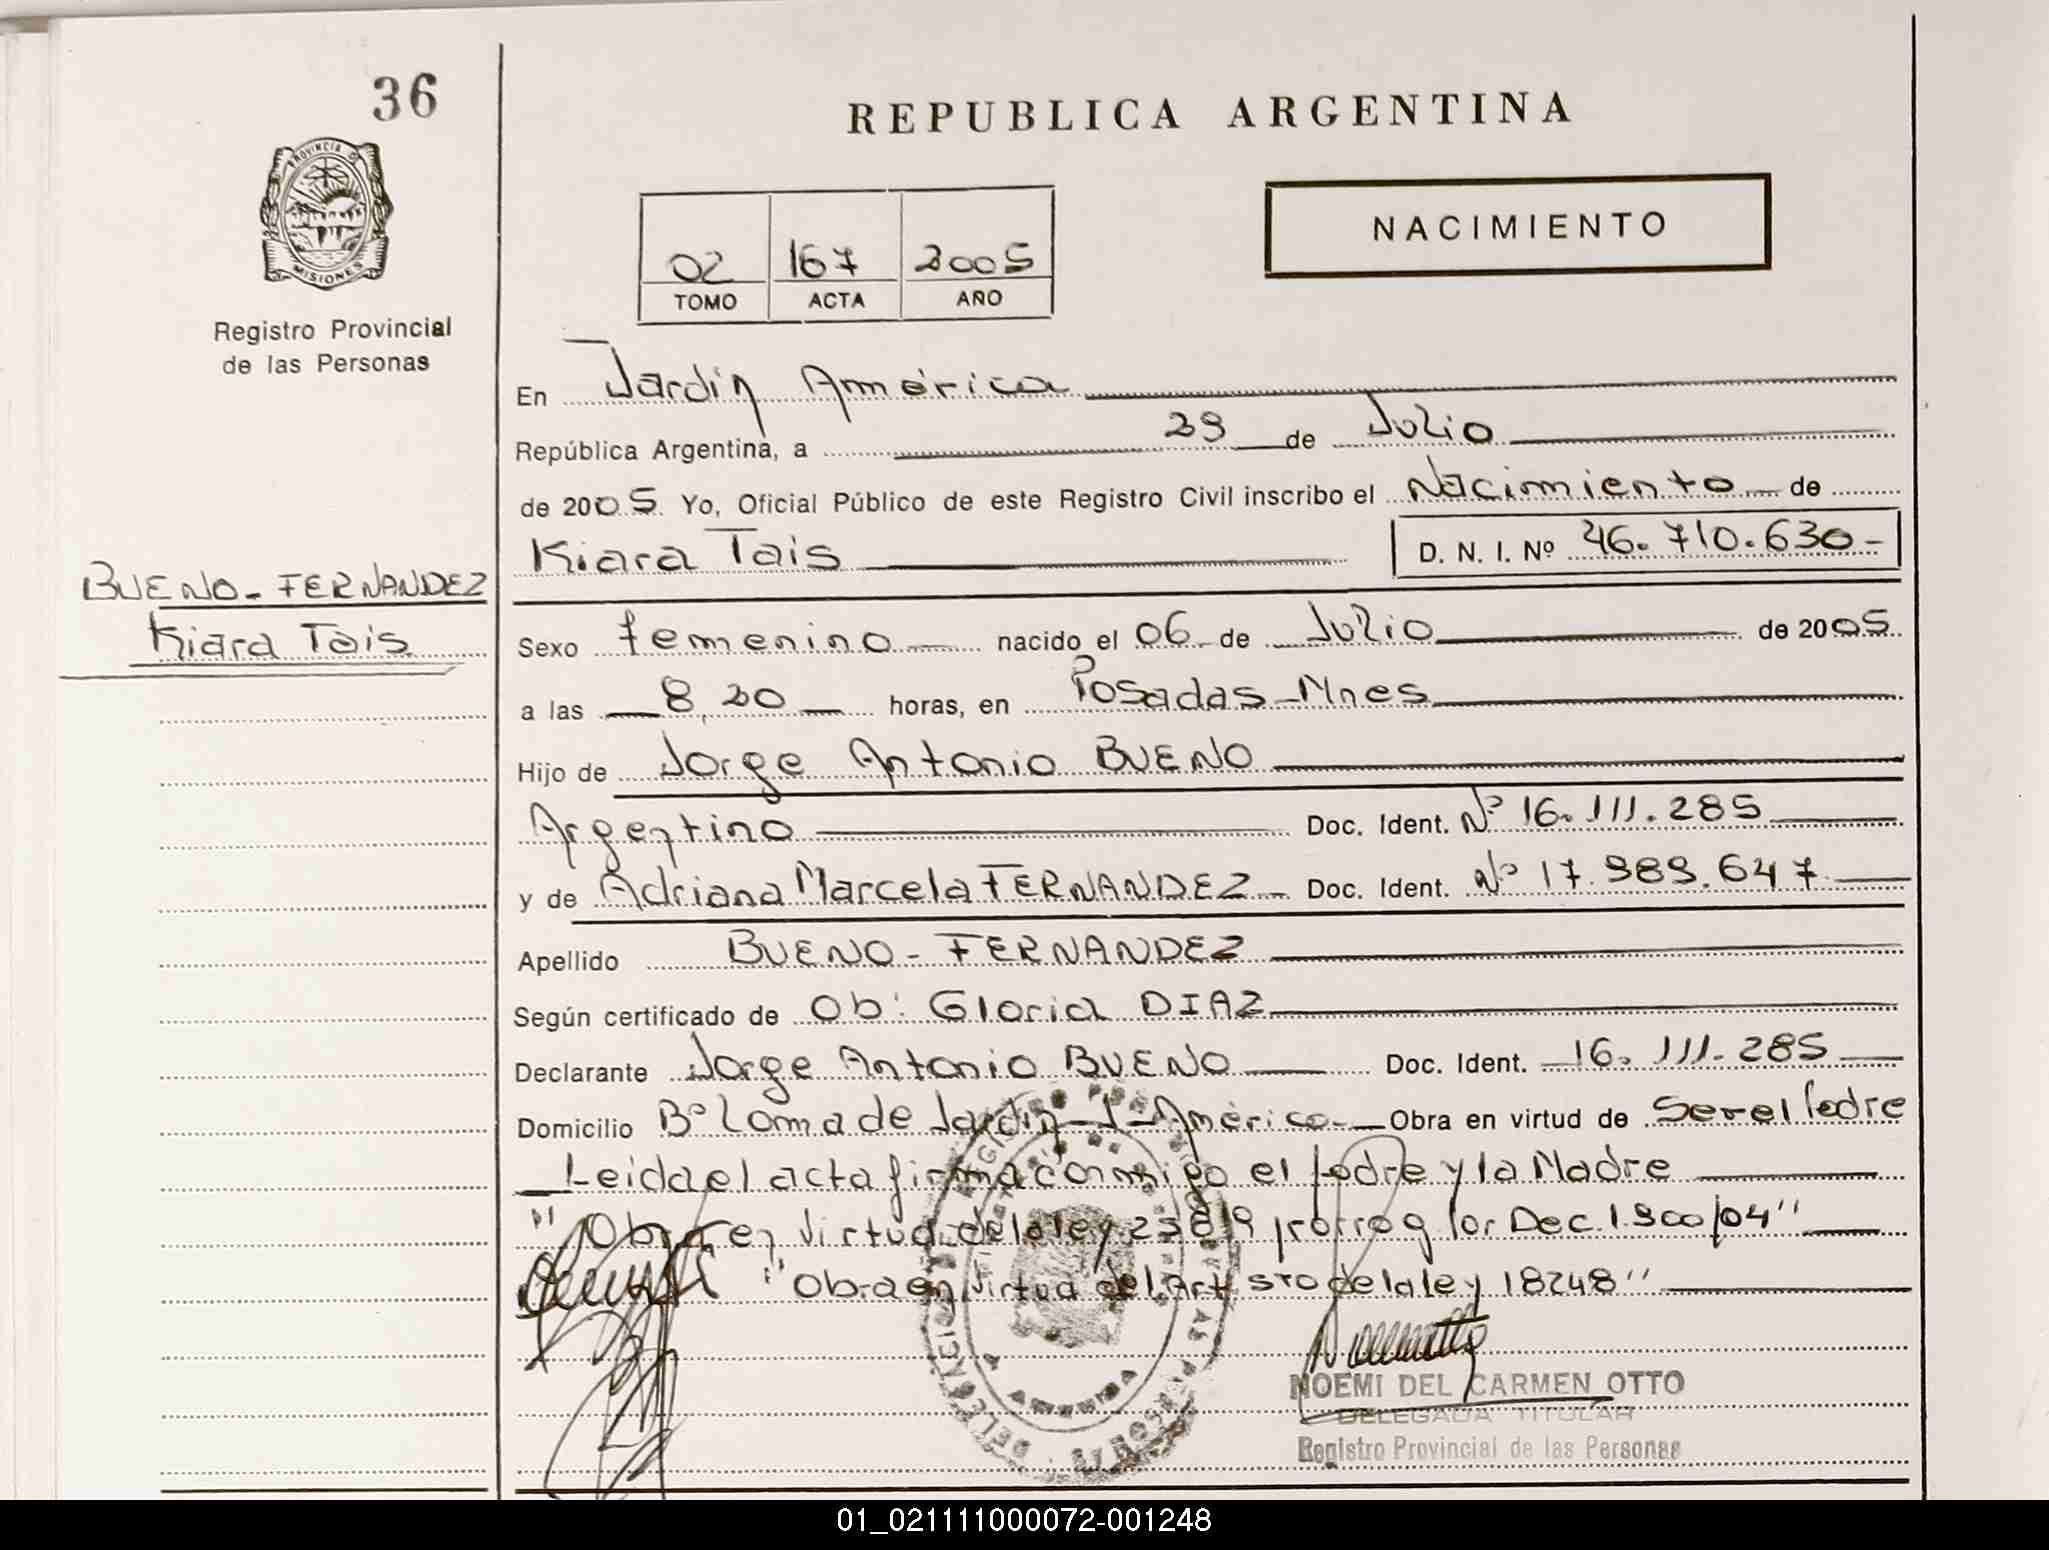 36
REPUBLICA ARGENTINA
PROVINCIA D
MISIONES
NACIMIENTO
02 167 2005
TOMO ACTA AÑO
Registro Provincial
de las Personas
En Jardín América
República Argentina, a 29 de Julio
de 2005 Yo, Oficial Público de este Registro Civil inscribo el Nacimiento de
Kiara Tais D. N. I. Nº 46.710.630-
BUENO - FERNANDEZ
Kiara Tais
Sexo femenino nacido el 06 de Julio de 2005
a las 8,20 horas, en Posadas - Mnes
Hijo de Jorge Antonio BUENO
Argentino Doc. Ident. Nº 16.111.285
y de Adriana Marcela FERNANDEZ Doc. Ident. Nº 17.989.647
Apellido BUENO - FERNANDEZ
Según certificado de Ob: Gloria DIAZ
Declarante Jorge Antonio BUENO Doc. Ident. 16.111.285
Domicilio Bº Loma de Jardín - J - América Obra en virtud de Ser el Padre
Leida el acta firma conmigo el Padre y la Madre
"Obra en Virtud de la ley 25819 prorrog por Dec. 1.900/04"
"Obra en Virtud del Art 5to de la ley 18248"
NOEMI DEL CARMEN OTTO
DELEGADA TITULAR
Registro Provincial de las Personas
01_021111000072-001248